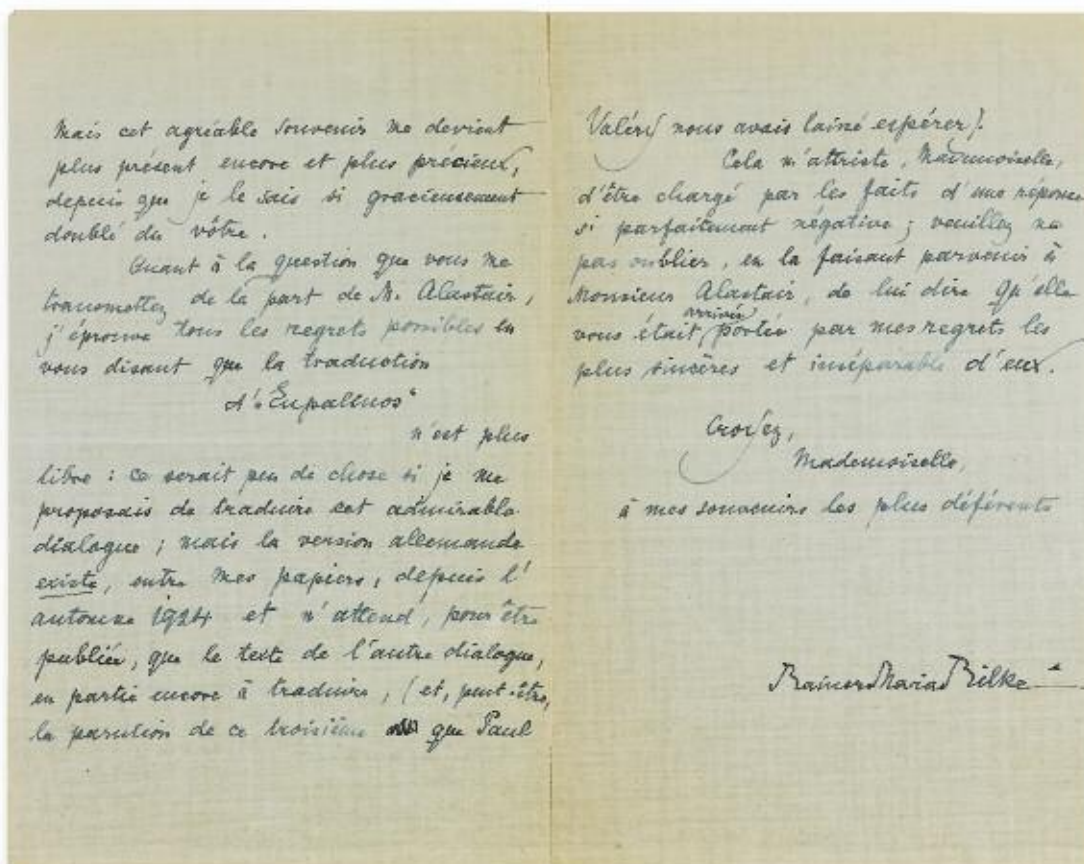 Mais cet agréable souvenir me devient
plus présent encore et plus précieux,
depuis que je le sais si gracieusement
doublé du vôtre.
Quant à la question que vous me
transmettez de la part de M. Alastair,
j'éprouve tous les regrets possibles en
vous disant que la traduction
d'"Eupalinos"
n'est plus
libre : ce serait peu de chose si je me
proposais de traduire cet admirable
dialogue ; mais la version allemande
existe, entre mes papiers, depuis l'
automne 1924 et n'attend, pour être
publiée, que le texte de l'autre dialogue,
en partie encore à traduire, (et, peut-être,
la parution de ce troisième que Paul
Valéry nous avais laissé espérer).
Cela m'attriste, Mademoiselle,
d'être chargé par les faits d'une réponse
si parfaitement négative ; veuillez ne
pas oublier, en la faisant parvenir à
Monsieur Alastair, de lui dire qu'elle
arrivée
vous était portée par mes regrets les
plus sincères et inséparable d'eux.
Croyez,
Mademoiselle,
à mes souvenirs les plus déférents
Rainer Maria Rilke